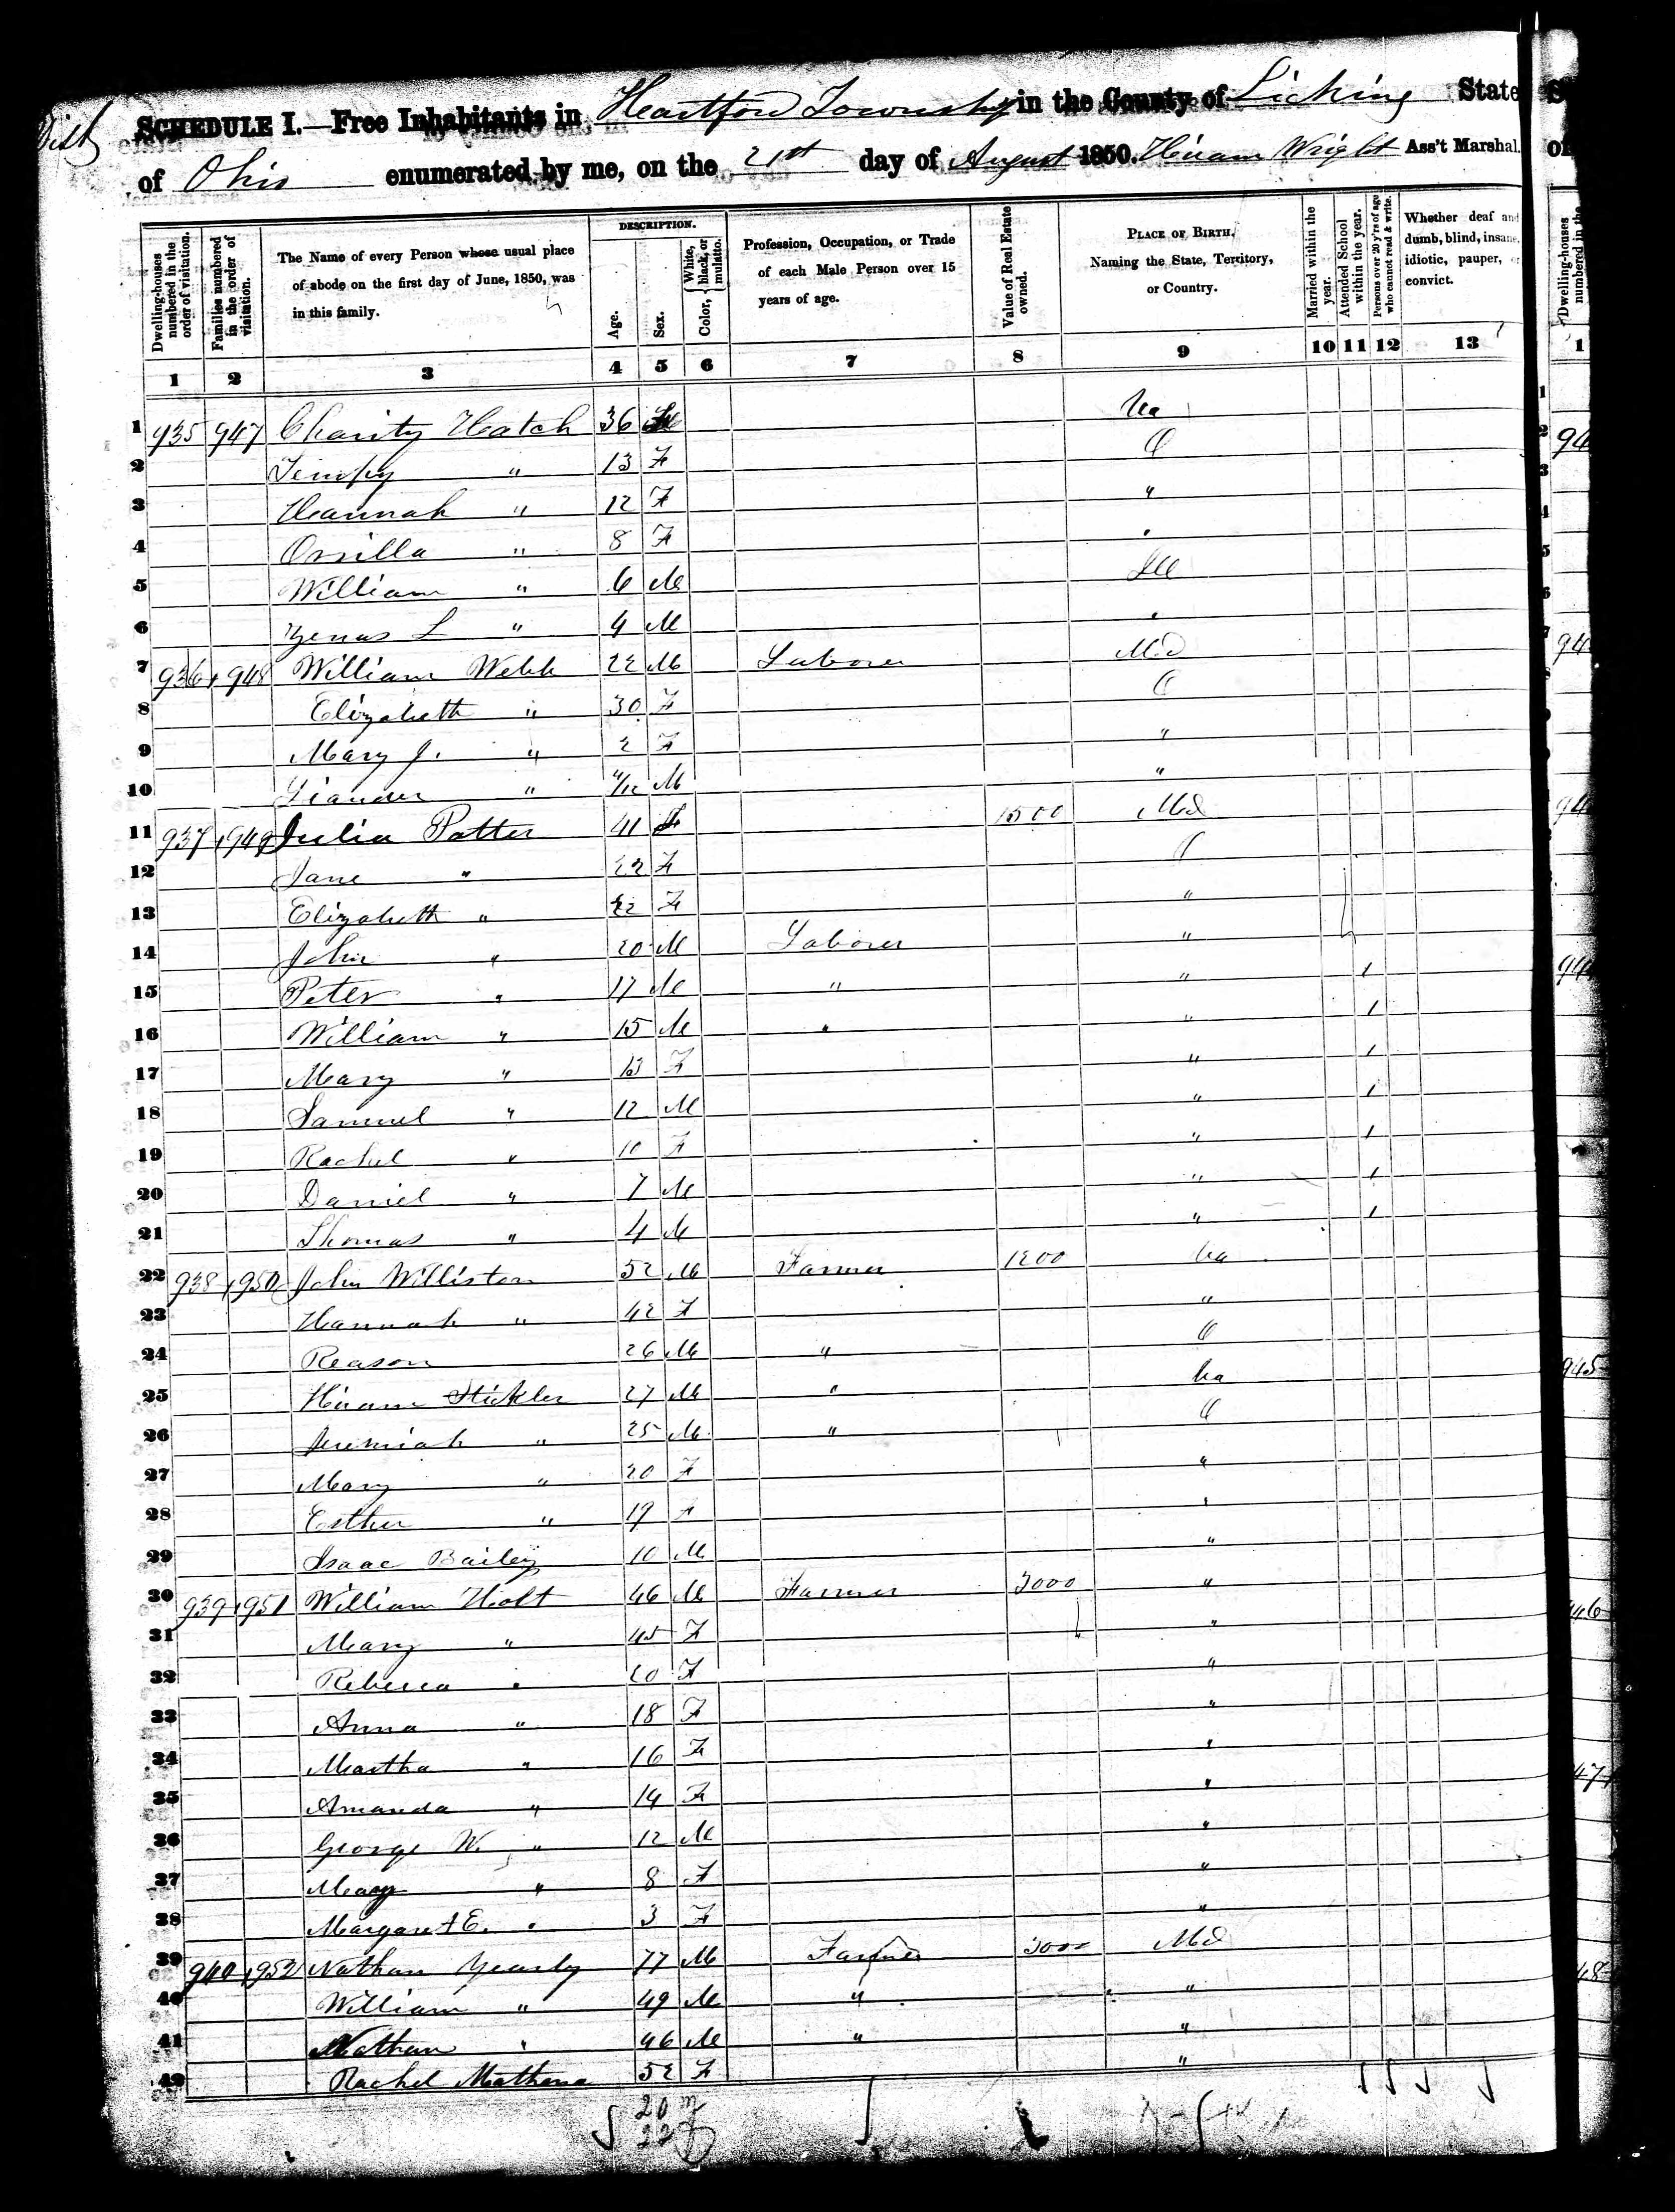 SCHEDULE I.—Free Inhabitants in Heartford Township in the County of Licking State
of Ohio enumerated by me, on the 21st day of August 1850. Hiram Wright Ass't Marshal.
Dwelling-houses numbered in the order of visitation.
Families numbered in the order of visitation.
The Name of every Person whose usual place of abode on the first day of June, 1850, was in this family.
DESCRIPTION.
Age.
Sex.
Color, { White, black, or mulatto.
Profession, Occupation, or Trade of each Male Person over 15 years of age.
Value of Real Estate owned.
PLACE OF BIRTH, Naming the State, Territory, or Country.
Married within the year.
Attended School within the year.
Persons over 20 y'rs of age who cannot read & write.
Whether deaf and dumb, blind, insane, idiotic, pauper, or convict.
1 2 3 4 5 6 7 8 9 10 11 12 13
1 935 947 Charity Hatch 36 Va
2 " 13 F O
3 Hannah " 12 F "
4 Orsilla " 8 F "
5 William " 6 M Ill
6 Zenas L " 4 M "
7 936 948 William Webb 22 M Laborer Md
8 Elizabeth " 30 F O
9 Mary J. " 2 F "
10 Liander " /12 M "
11 937 949 Julia Potter 41 F 1500 Md
12 Jane " 22 F O
13 Elizabeth " 22 F "
14 John " 20 M Laborer "
15 Peter " 17 M " " 1
16 William " 15 M " " 1
17 Mary " 13 F " 1
18 Samuel " 12 M " 1
19 Rachel " 10 F " 1
20 Daniel " 7 M " 1
21 Thomas " 4 M " 1
22 938 950 John Williston 52 M Farmer 1200 Va
23 Hannah " 42 F "
24 Reason 26 M " O
25 Hiram Stickler 27 M " Va
26 Jeremiah " 25 M " O
27 Mary " 20 F "
28 Esther " 19 F "
29 Isaac Bailey 10 M "
30 939 951 William Holt 46 M Farmer 3000 "
31 Mary " 45 F "
32 Rebecca " 20 F "
33 Anna " 18 F "
34 Martha " 16 F "
35 Amanda " 14 F "
36 George W. " 12 M "
37 Mary " 8 F "
38 Margaret E. " 3 F "
39 940 952 Nathan Yearly 77 M Farmer 3000 Md
40 William " 49 M " "
41 Nathan " 46 M " "
42 Rachel Mathena 52 F "
20 M
22 F